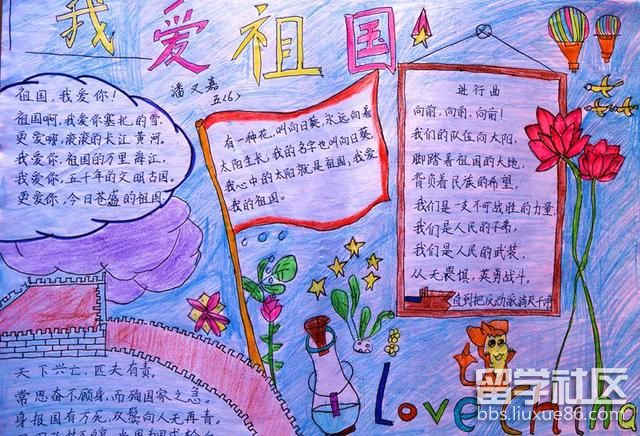 我爱祖国
潘又嘉
五(6)
祖国,我爱你!
祖国啊,我爱你塞北的雪,
更爱哪,滚滚的长江黄河。
我爱你,祖国的万里海江,
我爱你,五千年的文明古国。
更爱你,今日苍盛的祖国。
有一种花,叫向日葵,永远向着
太阳生长,我的名字也叫向日葵,
我心中的太阳就是祖国,我爱
我的祖国。
进行曲
向前,向前,向前!
我们的队伍向太阳,
脚踏着祖国的大地,
背负着民族的希望,
我们是一支不可战胜的力量,
我们是人民的子弟,
我们是人民的武装,
从无畏惧,英勇战斗。
直到把反动派消灭干净
天下兴亡,匹夫有责。
常思奋不顾身,而殉国家之急。
身报国有万死,双鬓向人无再青。
Love China
留学社区
bbs.liuxue86.com